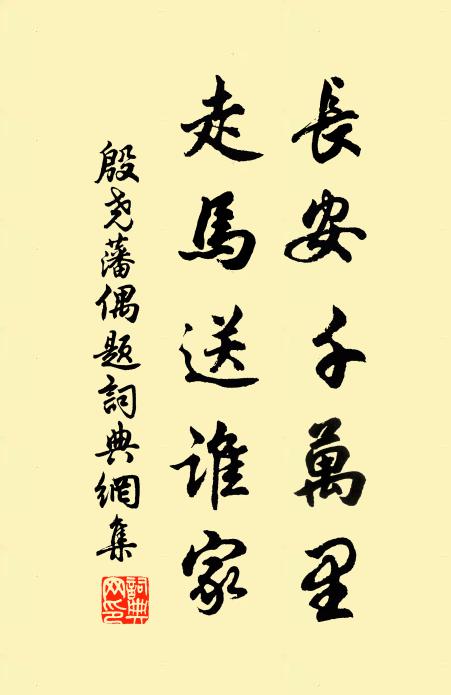 長安千萬里
走馬送誰家
殷堯藩偶題詞典網集
詞典
网印